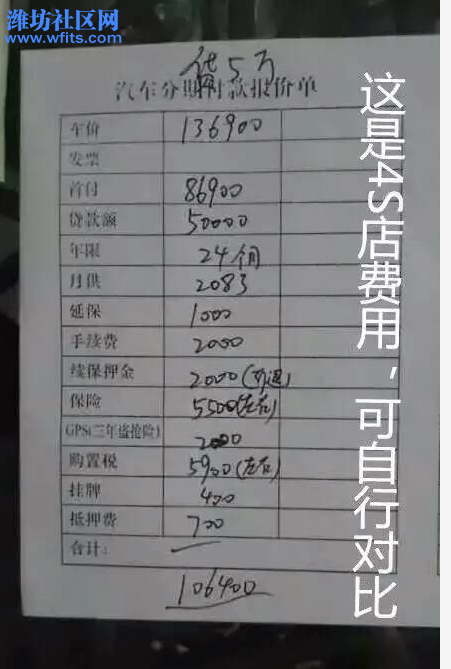 潍坊社区网
www.wfits.com
贷5万
汽车分期付款报价单
车价 136900
发票
首付 86900
贷款额 50000
年限 24个月
月供 2083
延保 1000
手续费 2000
续保押金 2000(可退)
保险 5500(左右)
GPS(三年盗抢险) 2000
购置税 5900(左右)
挂牌 400
抵押费 700
合计:
106400
这是4S店费用,可自行对比